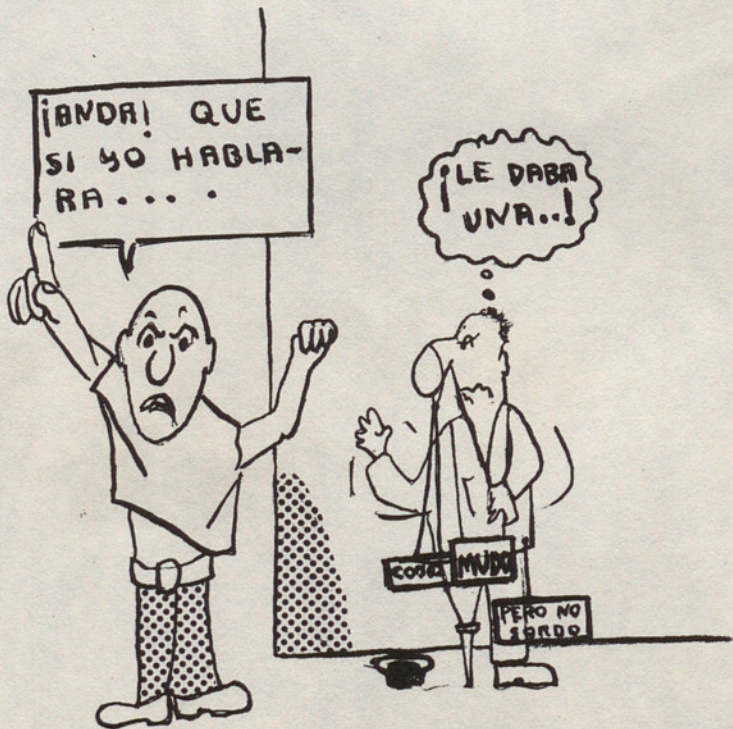 ¡ANDA! QUE
SI YO HABLA-
RA....
¡LE DABA
UNA..!
COJO
MUDO
PERO NO
SORDO